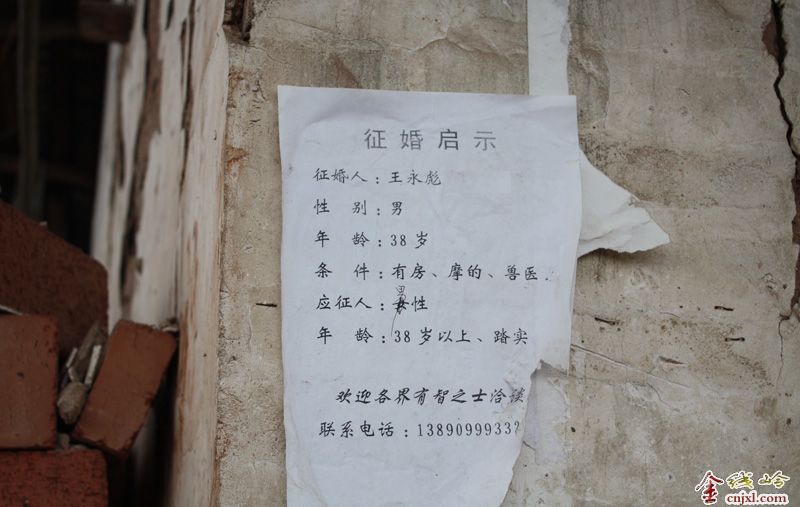 征婚启示
征婚人：王永彪
性 别：男
年 龄：38岁
条 件：有房、摩的、兽医.
男
应征人：女性
年 龄：38岁以上、踏实
欢迎各界有智之士洽谈
联系电话：13890999332
金线岭
cnjxl.com